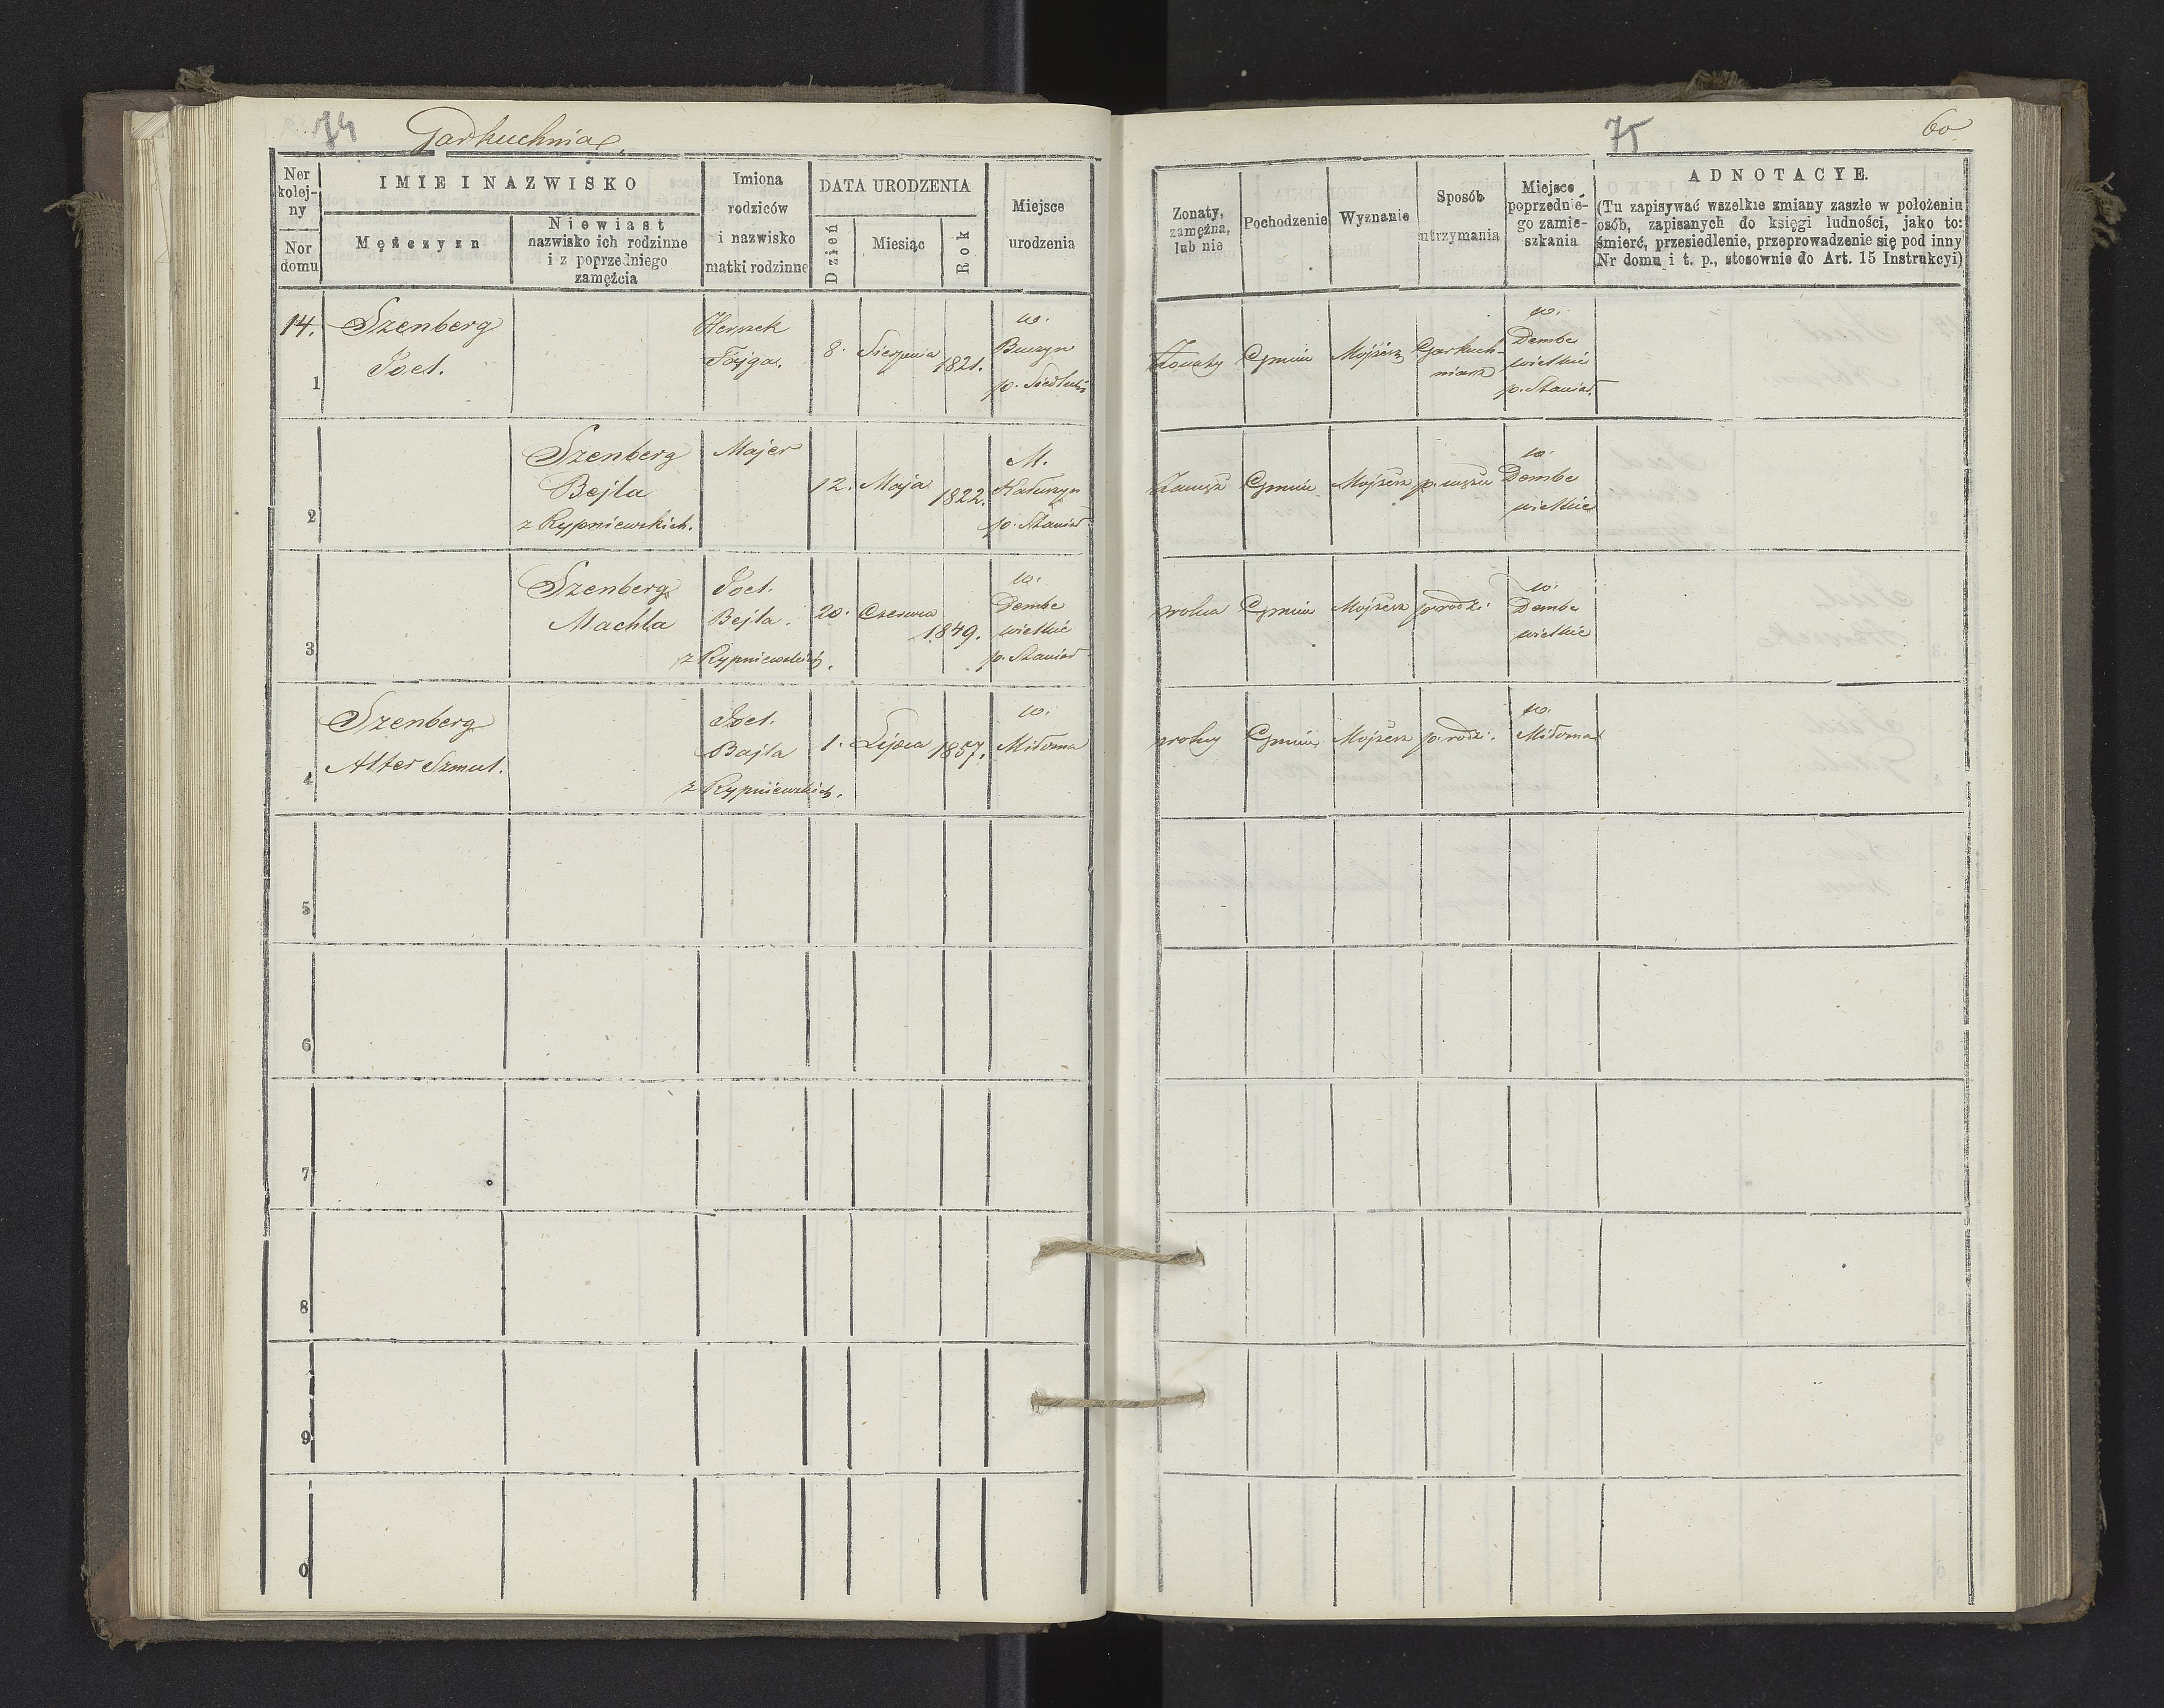 74
Garkuchnia.
Ner
kolej-
ny
Nor
domu
IMIE I NAZWISKO
Mężczyzn
Niewiast
nazwisko ich rodzinne
i z poprzedniego
zamężcia
Imiona
rodziców
i nazwisko
matki rodzinne
DATA URODZENIA
Dzień
Miesiąc
Rok
Miejsce
urodzenia
14.
1
Szenberg
Joel.
Herszek
Fajga.
8.
Sierpnia
1821.
w.
p. Siedlecki
2
Szenberg
Bejla
z Rypniewskich.
Majer
12.
Maja
1822.
M.
Kałuszyn
p. Stanisł.
3
Szenberg
Machla
Joel.
Bejla.
z Rypniewskich.
20.
Czerwca
1849.
w.
Dembe
wielkie
p. Stanisł.
4
Szenberg
Alter Szmul.
Joel.
Bajla
z Rypniewskich.
1.
Lipca
1857.
w.
Miłosna
5
6
7
8
9
0
75
60
Zonaty,
zamężna,
lub nie
Pochodzenie
Wyznanie
Sposób
utrzymania
Miejsce
poprzednie-
go zamie-
szkania
ADNOTACYE.
(Tu zapisywać wszelkie zmiany zaszłe w położeniu
osób, zapisanych do księgi ludności, jako to:
śmierć, przesiedlenie, przeprowadzenie się pod inny
Nr domu i t. p., stosownie do Art. 15 Instrukcyi)
Żonaty
Gmin
Mojżesz
Garkuch-
niarz
w.
Dembe
wielkie
p. Stanisł.
Zamęż
Gmin
Mojżesz
p. mężu
w.
Dembe
wielkie
wolna
Gmin
Mojżesz
p. rodzi.
w.
Dembe
wielkie
wolny
Gmin
Mojżesz
p. rodzi.
w.
Miłosna